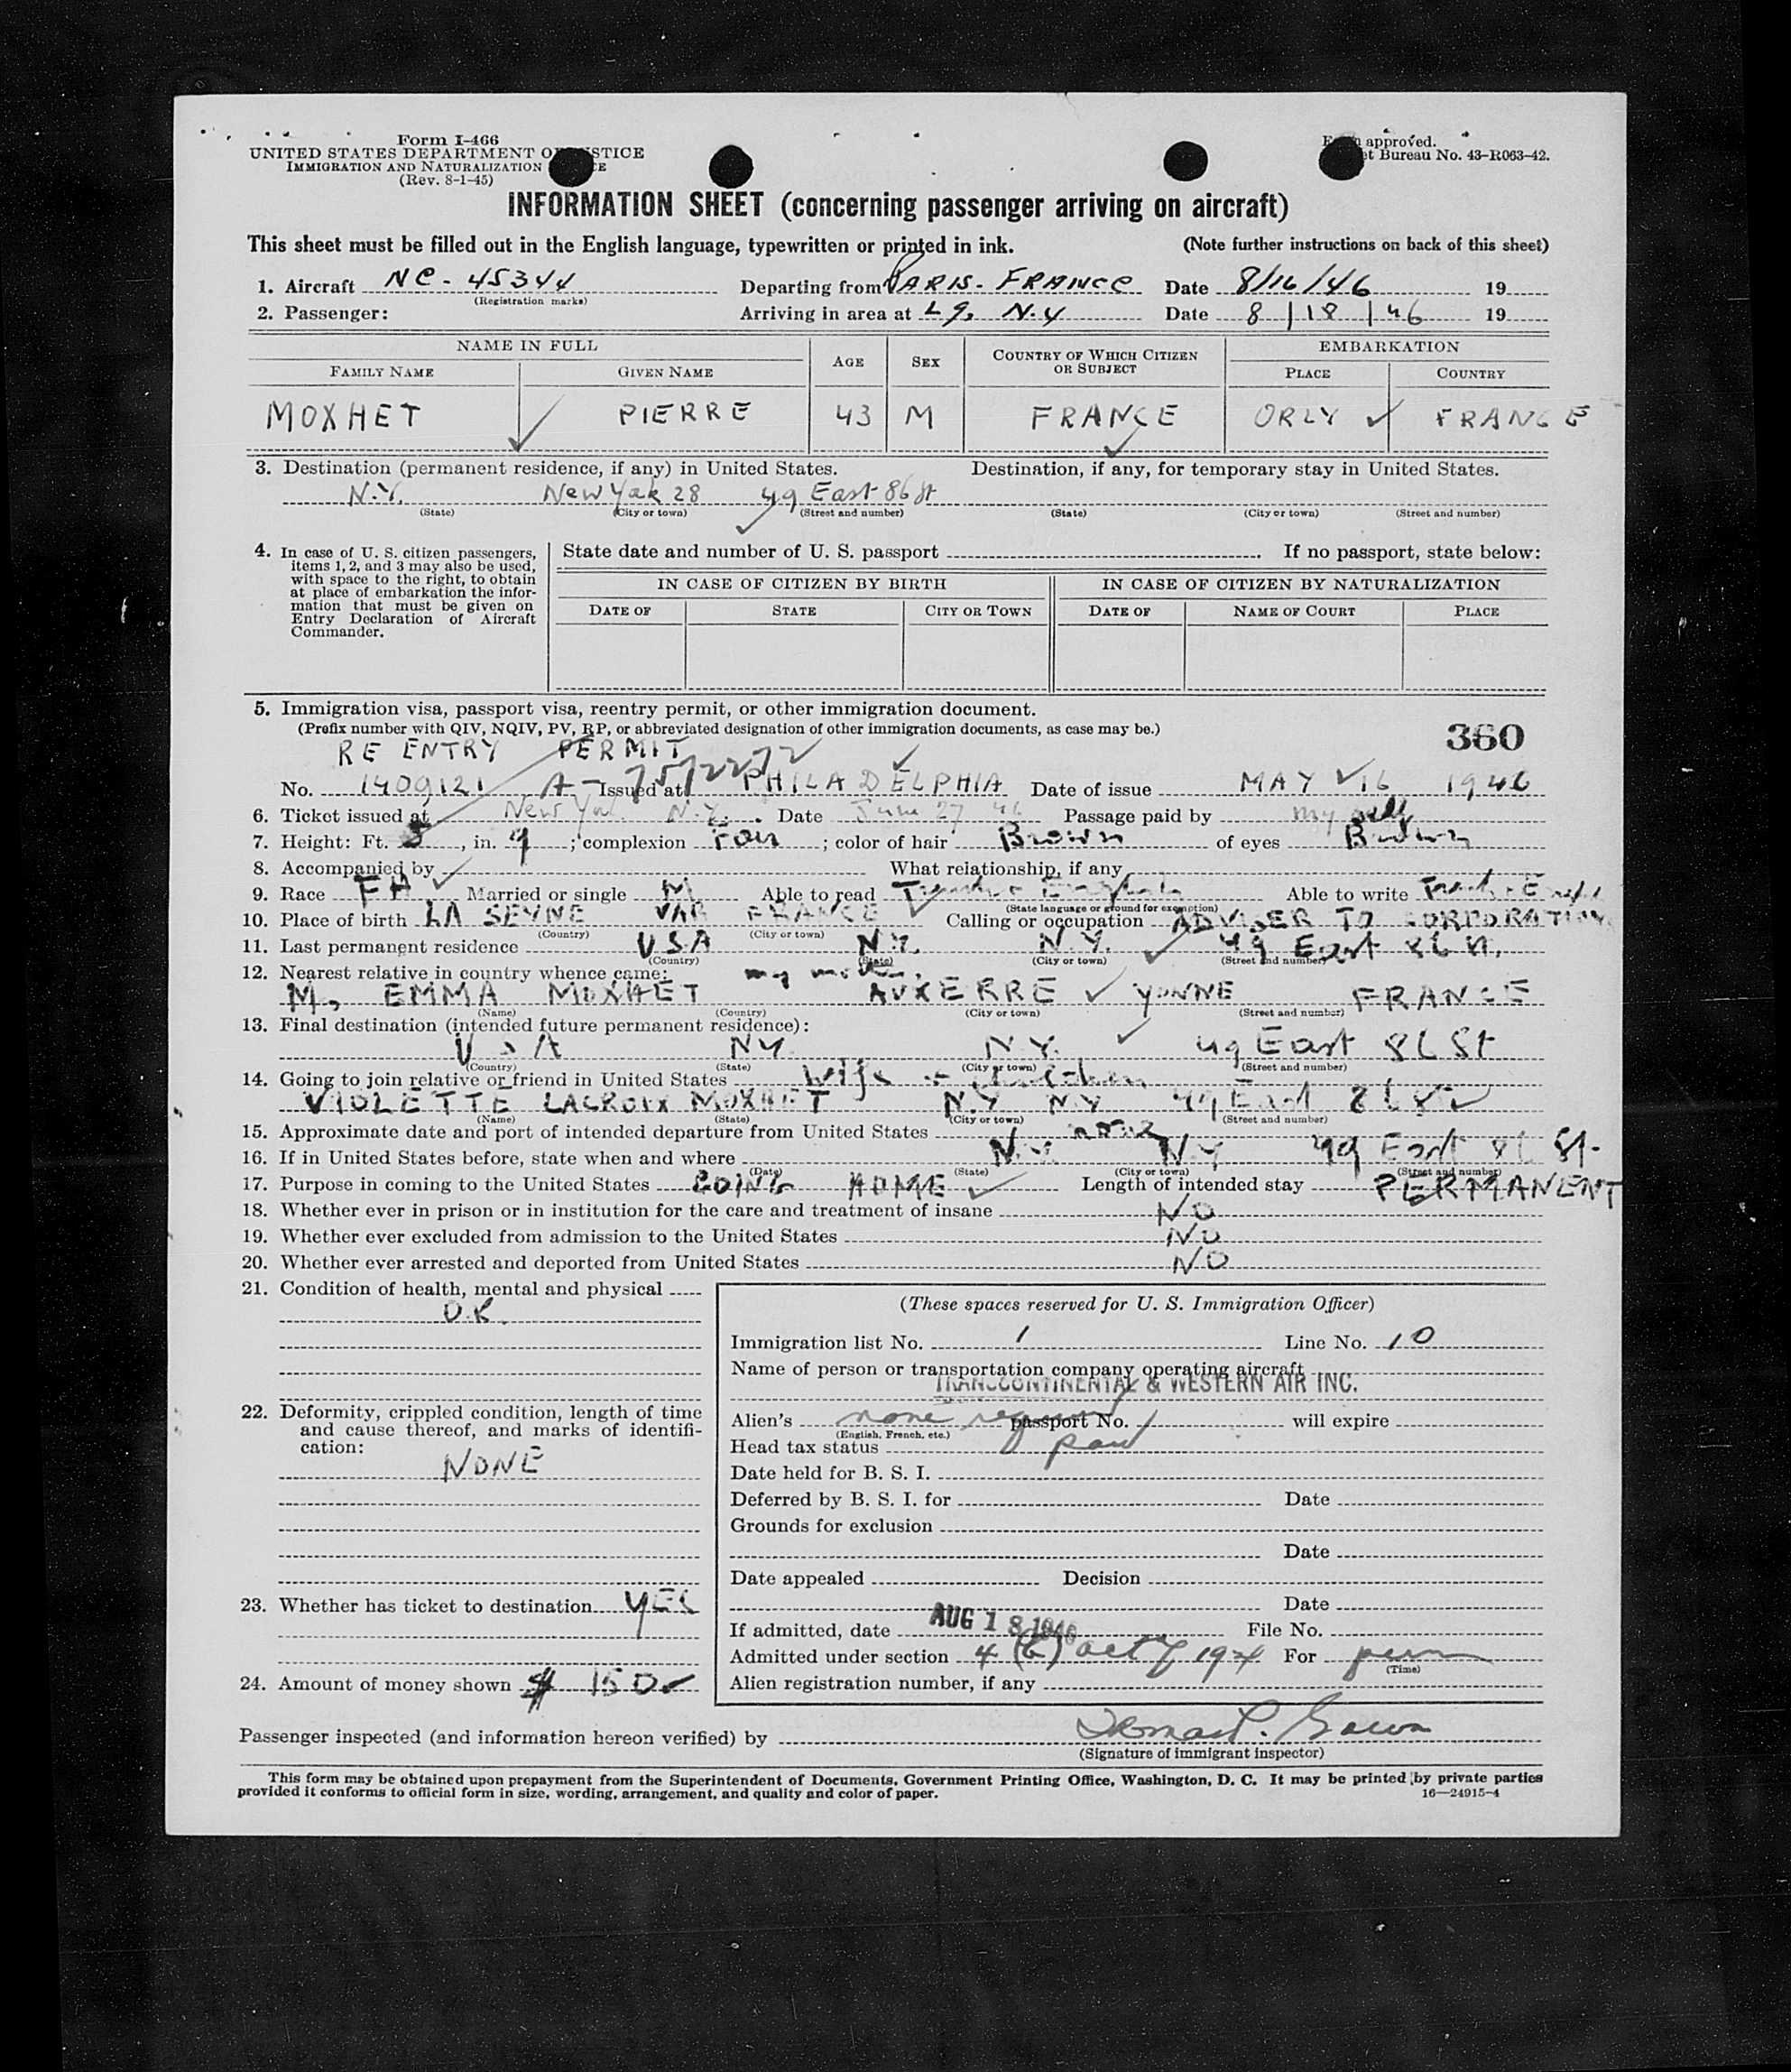 Form I-466
UNITED STATES DEPARTMENT OF JUSTICE
IMMIGRATION AND NATURALIZATION
(Rev. 8-1-45)
approved.
Bureau No. 43-R063-42.
INFORMATION SHEET (concerning passenger arriving on aircraft)
This sheet must be filled out in the English language, typewritten or printed in ink. (Note further instructions on back of this sheet)
1. Aircraft NC-45344 Departing from PARIS-FRANCE Date 8/16/46 19
(Registration marks)
2. Passenger: Arriving in area at L G, N.Y Date 8/18/46 19
NAME IN FULL AGE SEX COUNTRY OF WHICH CITIZEN OR SUBJECT EMBARKATION
FAMILY NAME GIVEN NAME PLACE COUNTRY
MOXHET PIERRE 43 M FRANCE ORLY FRANCE
3. Destination (permanent residence, if any) in United States. Destination, if any, for temporary stay in United States.
N.Y. New York 28 49 East 86 St
(State) (City or town) (Street and number) (State) (City or town) (Street and number)
4. In case of U. S. citizen passengers, items 1, 2, and 3 may also be used, with space to the right, to obtain at place of embarkation the information that must be given on Entry Declaration of Aircraft Commander.
State date and number of U. S. passport . If no passport, state below:
IN CASE OF CITIZEN BY BIRTH IN CASE OF CITIZEN BY NATURALIZATION
DATE OF STATE CITY OR TOWN DATE OF NAME OF COURT PLACE
5. Immigration visa, passport visa, reentry permit, or other immigration document.
(Prefix number with QIV, NQIV, PV, RP, or abbreviated designation of other immigration documents, as case may be.)
360
RE ENTRY PERMIT
A-7572272
No. 1409121 Issued at PHILADELPHIA Date of issue MAY 16 1946
6. Ticket issued at New York N.Y. Date June 27 46 Passage paid by my self
7. Height: Ft. 5, in. 9; complexion Fair; color of hair Brown of eyes Brown
8. Accompanied by What relationship, if any
9. Race FH Married or single M Able to read French + English Able to write French + English
(State language or ground for exemption)
10. Place of birth LA SEYNE VAR FRANCE Calling or occupation ADVISER TO CORPORATION
(Country) (City or town)
11. Last permanent residence USA N.Y. N.Y. 49 East 86 St.
(Country) (State) (City or town) (Street and number)
12. Nearest relative in country whence came: my mother
M, EMMA MOXHET AUXERRE YONNE FRANCE
(Name) (Country) (City or town) (Street and number)
13. Final destination (intended future permanent residence):
USA NY. N.Y. 49 East 86 St
(Country) (State) (City or town) (Street and number)
14. Going to join relative or friend in United States Wife + children
VIOLETTE LACROIX MOXHET N.Y N.Y 49 East 86 St
(Name) (State) (City or town) (Street and number)
15. Approximate date and port of intended departure from United States none
16. If in United States before, state when and where N.Y. N.Y 49 East 86 St.
(Date) (State) (City or town) (Street and number)
17. Purpose in coming to the United States GOING HOME Length of intended stay PERMANENT
18. Whether ever in prison or in institution for the care and treatment of insane NO
19. Whether ever excluded from admission to the United States NO
20. Whether ever arrested and deported from United States NO
21. Condition of health, mental and physical
O.K.
22. Deformity, crippled condition, length of time and cause thereof, and marks of identification:
NONE
23. Whether has ticket to destination YES
24. Amount of money shown $ 150
(These spaces reserved for U. S. Immigration Officer)
Immigration list No. 1 Line No. 10
Name of person or transportation company operating aircraft
TRANSCONTINENTAL & WESTERN AIR INC.
Alien's none required passport No. will expire
(English, French, etc.)
Head tax status
Date held for B. S. I.
Deferred by B. S. I. for Date
Grounds for exclusion
Date
Date appealed Decision
Date
If admitted, date AUG 18 1946 File No.
Admitted under section 4 (b) act of 1924 For perm
(Time)
Alien registration number, if any
Passenger inspected (and information hereon verified) by
(Signature of immigrant inspector)
This form may be obtained upon prepayment from the Superintendent of Documents, Government Printing Office, Washington, D. C. It may be printed by private parties
provided it conforms to official form in size, wording, arrangement, and quality and color of paper. 16—24915-4